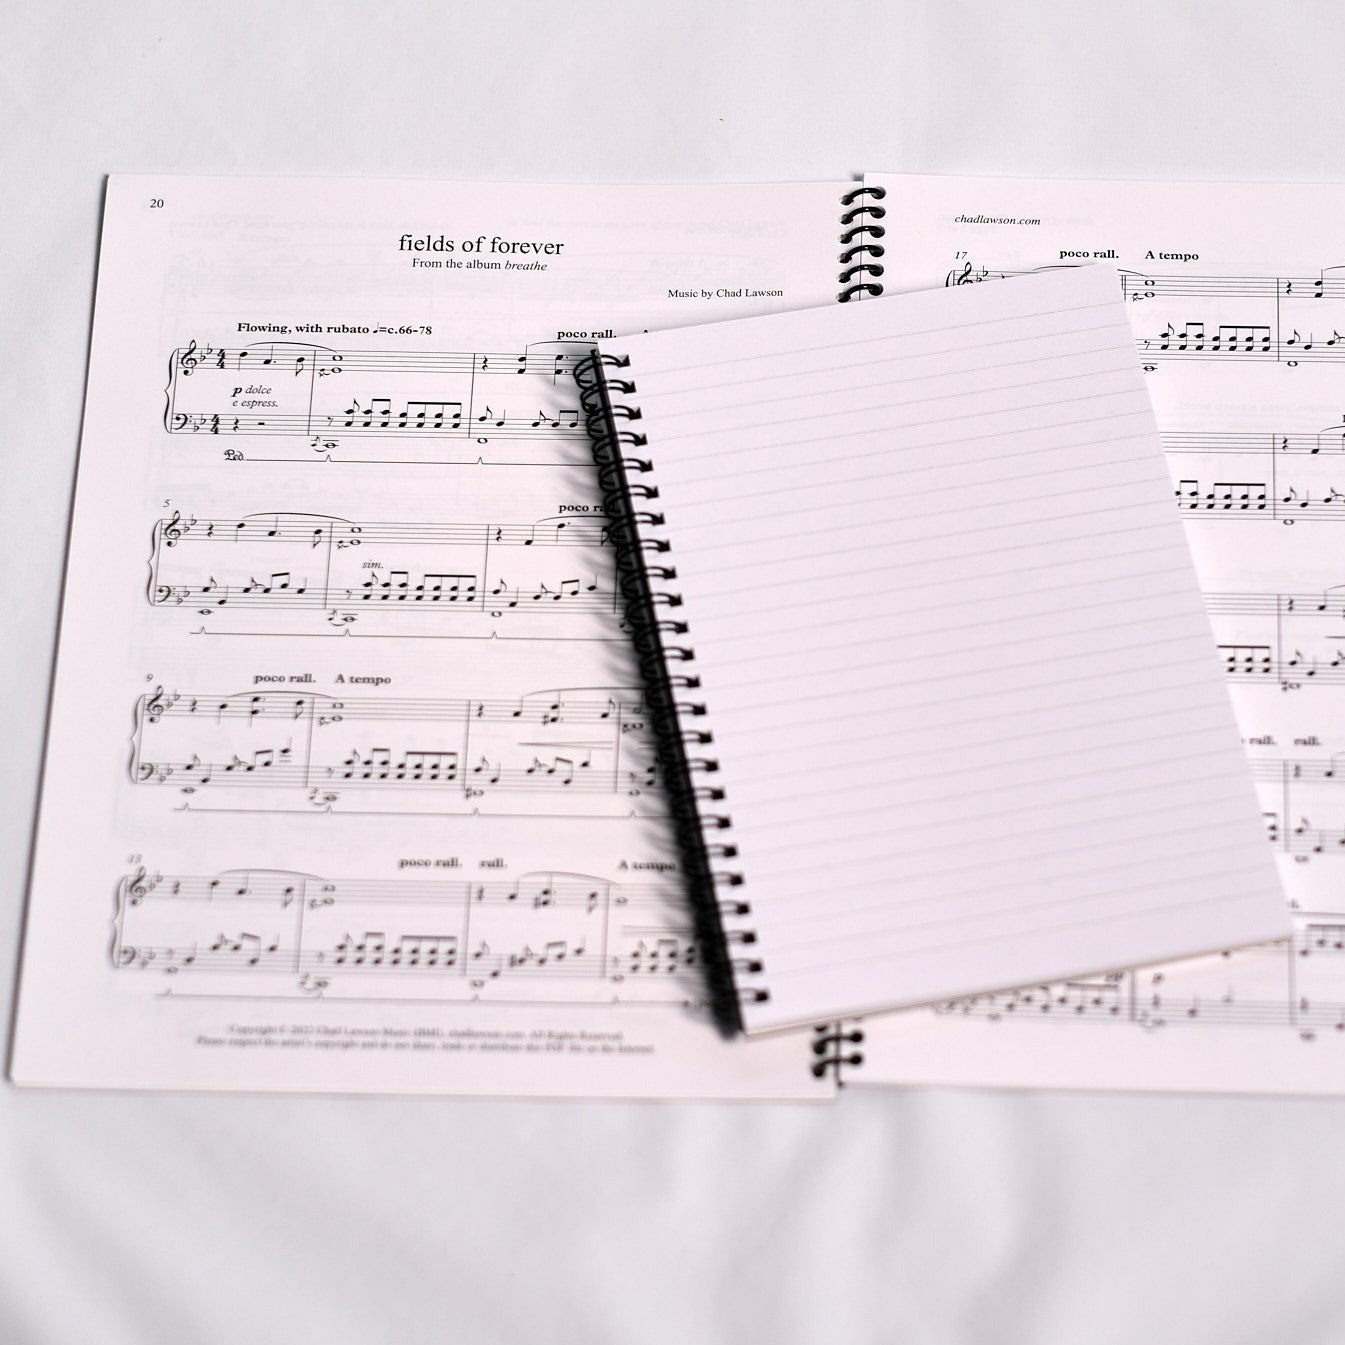 20
fields of forever
From the album breathe
Music by Chad Lawson
Flowing, with rubato ♩=c.66-78
poco rall.
p dolce
e espress.
Ped.
5
poco
sim.
9
poco rall. A tempo
13
poco rall. rall. A tempo
Copyright © 2023 Chad Lawson Music (BMI), chadlawson.com. All Rights Reserved.
Please respect the artist's copyright and do not share, trade or distribute this PDF file on the Internet
chadlawson.com
17
poco rall. A tempo
rall. rall.
p